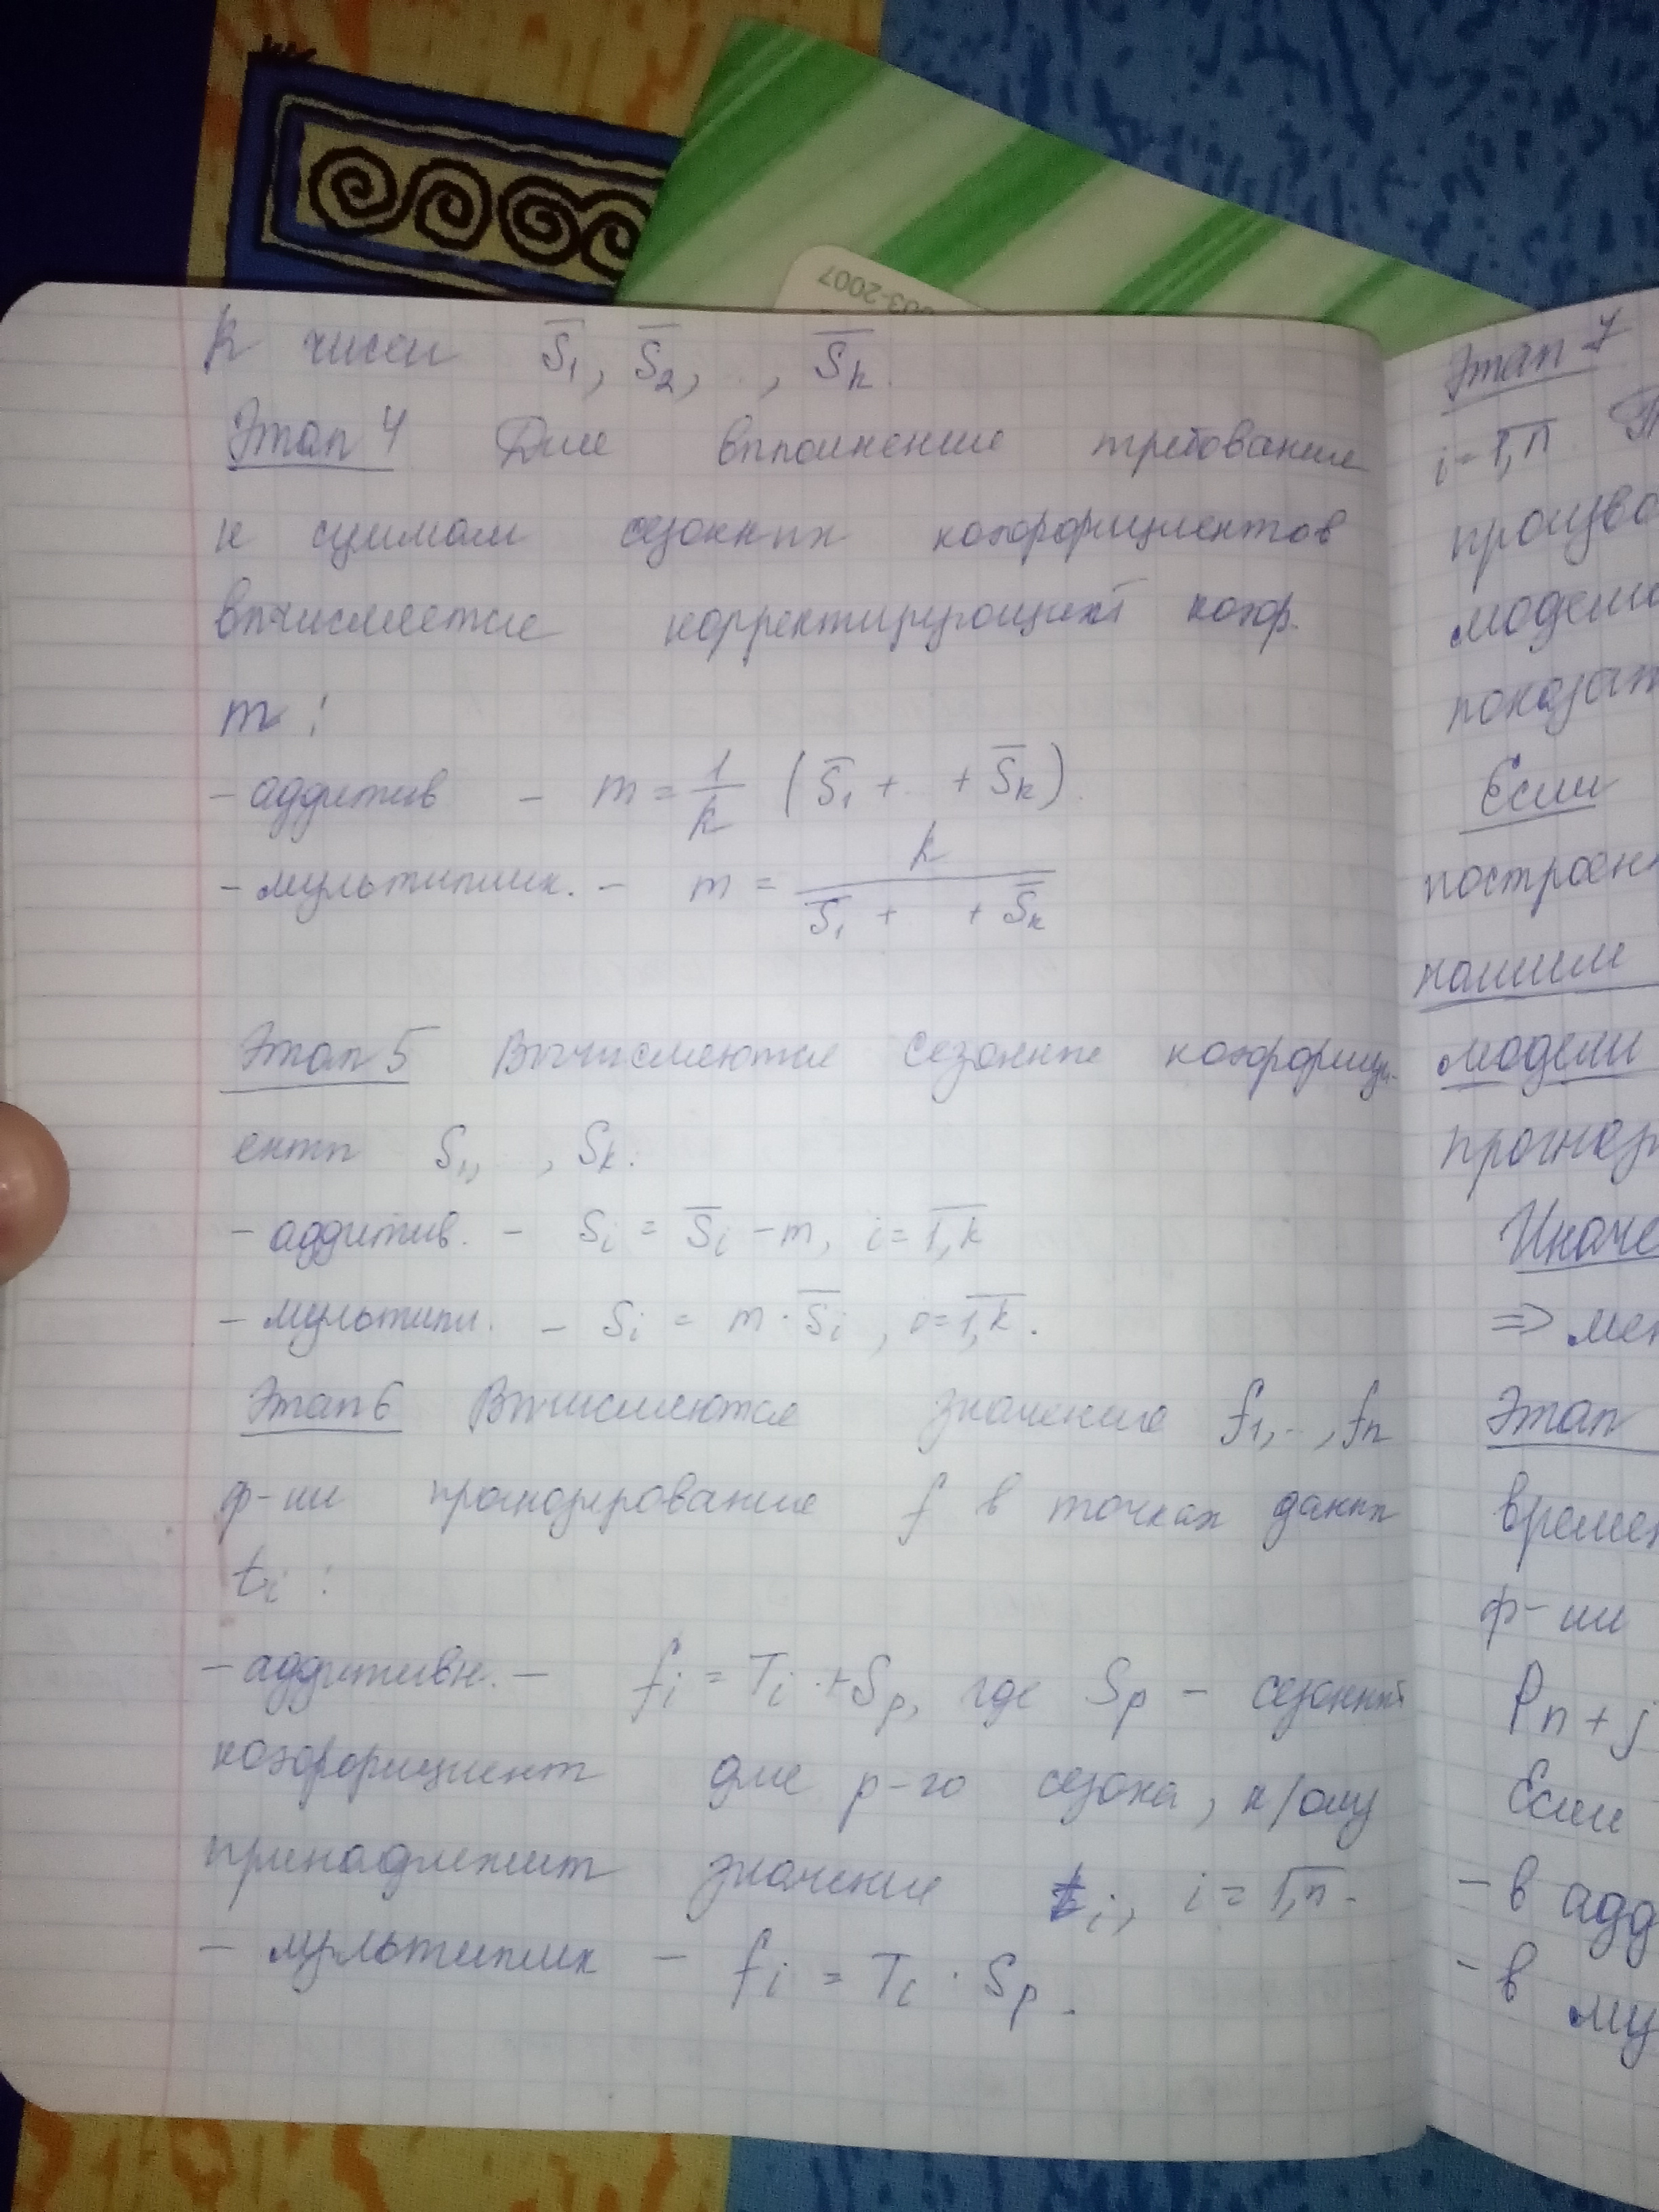 003-2007
k чисел S̅₁, S̅₂, .. , S̅ₖ.
Этап 4 Для выполнения требования
к суммам сезонных коэффициентов
вычисляется корректирующий коэф.
m :
- аддитив - m = 1/k (S̅₁ + .. + S̅ₖ).
- мультиплик. - m = k / (S̅₁ + + S̅ₖ)
Этап 5 Вычисляются сезонные коэффици-
енты S₁, , Sₖ.
- аддитив. - Sᵢ = S̅ᵢ - m, i = 1,k
- мультипл. - Sᵢ = m · S̅ᵢ , i = 1,k.
Этап 6 Вычисляются значения f₁, .. , fₙ
ф-ии прогнозирования f в точках данных
tᵢ :
- аддитивн. - fᵢ = Tᵢ + Sₚ, где Sₚ - сезонный
коэффициент для p-го сезона, к/ому
принадлежит значение tᵢ, i = 1,n.
- мультиплик - fᵢ = Tᵢ · Sₚ.
Этап 7
i = 1,n
произво
модели
показат
Если
построен
нашли
модели
прогноз
Иначе
=> мен
Этап
времен
ф-ии
Pₙ₊ⱼ
Если
- в адд
- в му